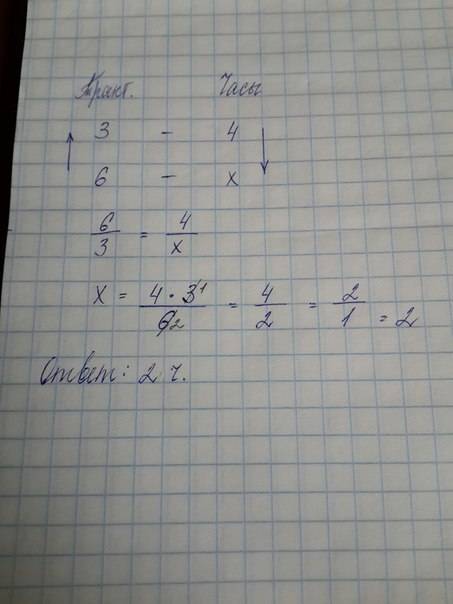 Тракт. Часы
↑ 3 - 4 ↓
6 - x
6/3 = 4/x
x = 4 · 3 1 / 6 2 = 4/2 = 2/1 = 2
Ответ: 2 ч.